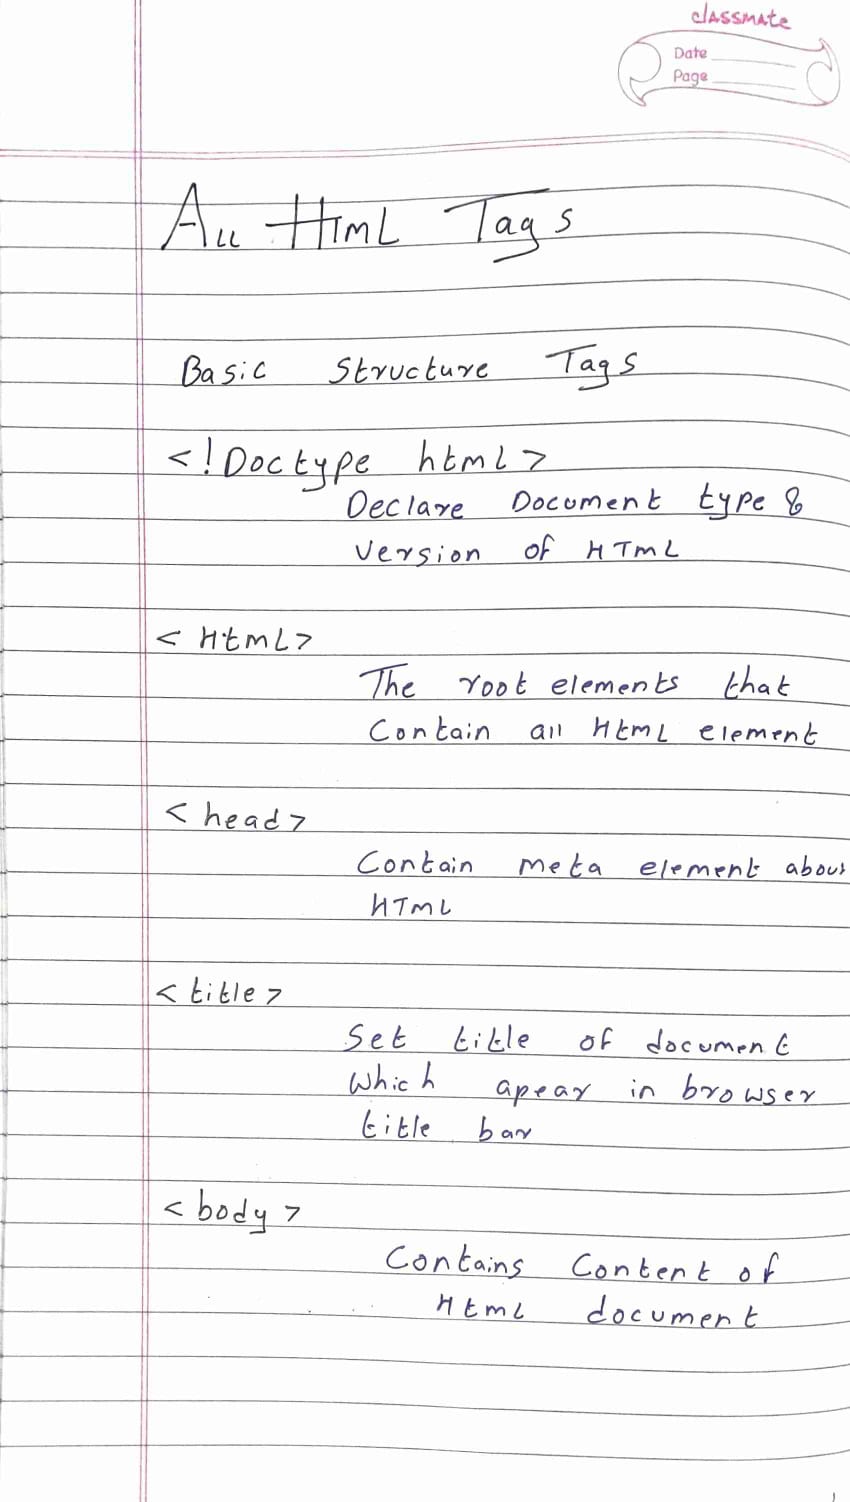 classmate
Date
Page
All HTML Tags
Basic Structure Tags
<!Doctype html>
Declare Document type &
version of HTML
<Html>
The root elements that
Contain all Html element
<head>
Contain meta element about
HTML
<title>
Set title of document
Which apear in browser
title bar
<body>
Contains Content of
Html document